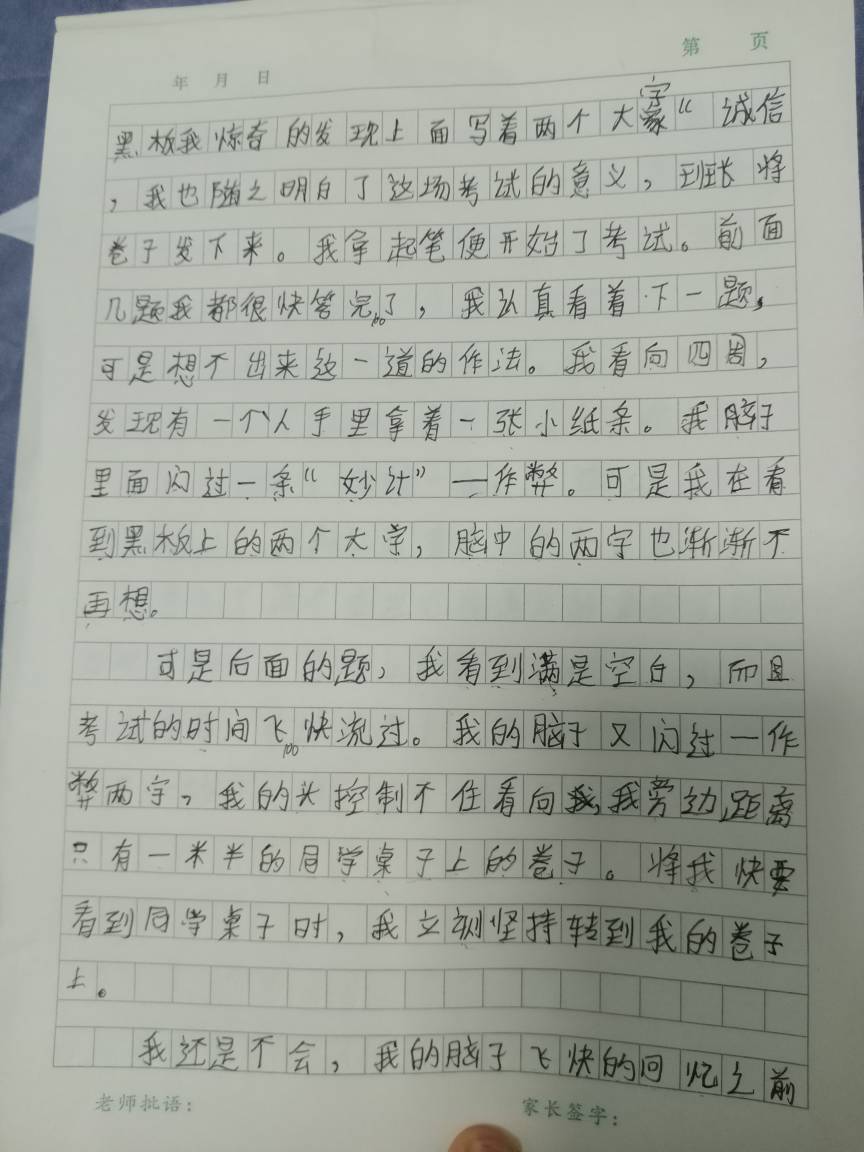 第 页
年 月 日
字
黑板我惊奇的发现上面写着两个大"诚信
，我也随之明白了这场考试的意义，班长将
卷子发下来。我拿起笔便开始了考试。前面
几题我都很快答完了，我认真看着下一题，
100
可是想不出来这一道的作法。我看向四周，
发现有一个人手里拿着一张小纸条。我脑子
里面闪过一条“妙计”—作弊。可是我在看
到黑板上的两个大字，脑中的两字也渐渐不
再想。
可是后面的题，我看到满是空白，而且
考试的时间飞快流过。我的脑子又闪过一作
100
弊两字，我的头控制不住看向我，我旁边距离
只有一米半的同学桌子上的卷子。将我快要
看到同学桌子时，我立刻坚持转到我的卷子
上。
我还是不会，我的脑子飞快的回忆之前
老师批语： 家长签字：